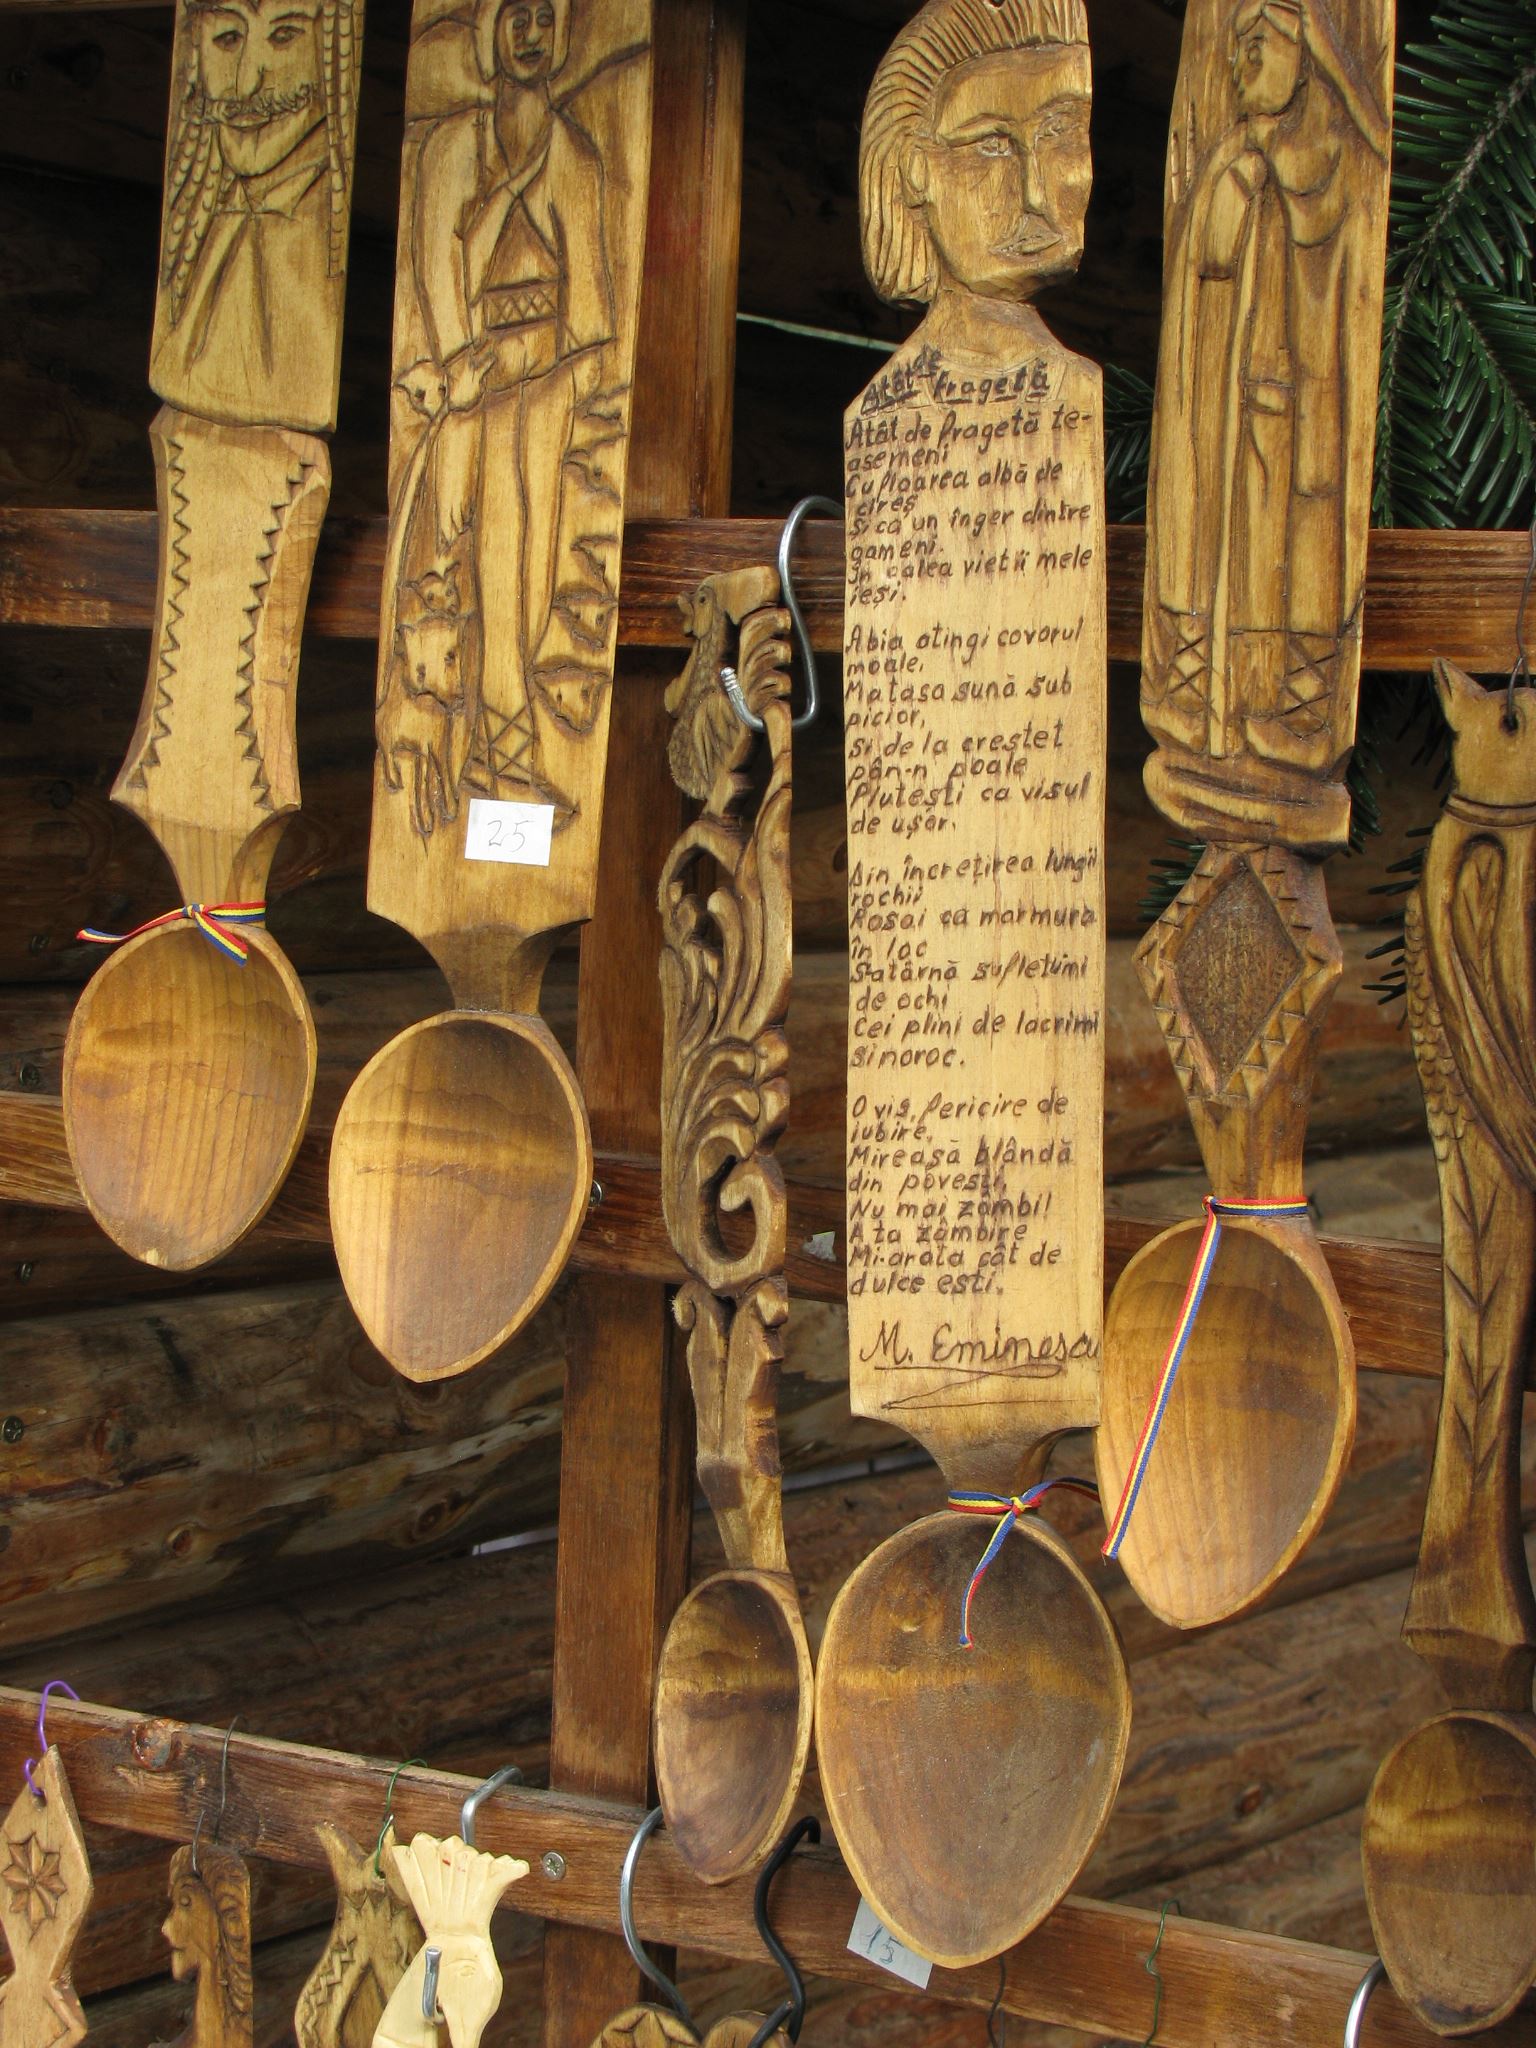 Atât de fragetă
Atât de fragetă te-
asemeni
Cu floarea albă de
cireș
Și ca un înger dintre
oameni
În calea vietii mele
ieși.
Abia atingi covorul
moale,
Matasa sună sub
picior,
Si de la creștet
pân-n poale
Plutești ca visul
de ușor.
Din încrețirea lungii
rochii
Rosai ca marmura
în loc
S-atârnă sufletu-mi
de ochi
Cei plini de lacrimi
si noroc.
O vis, fericire de
iubire,
Mireasă blândă
din povești,
Nu mai zâmbi!
A ta zâmbire
Mi-arata cât de
dulce esti.
M. Eminescu
25